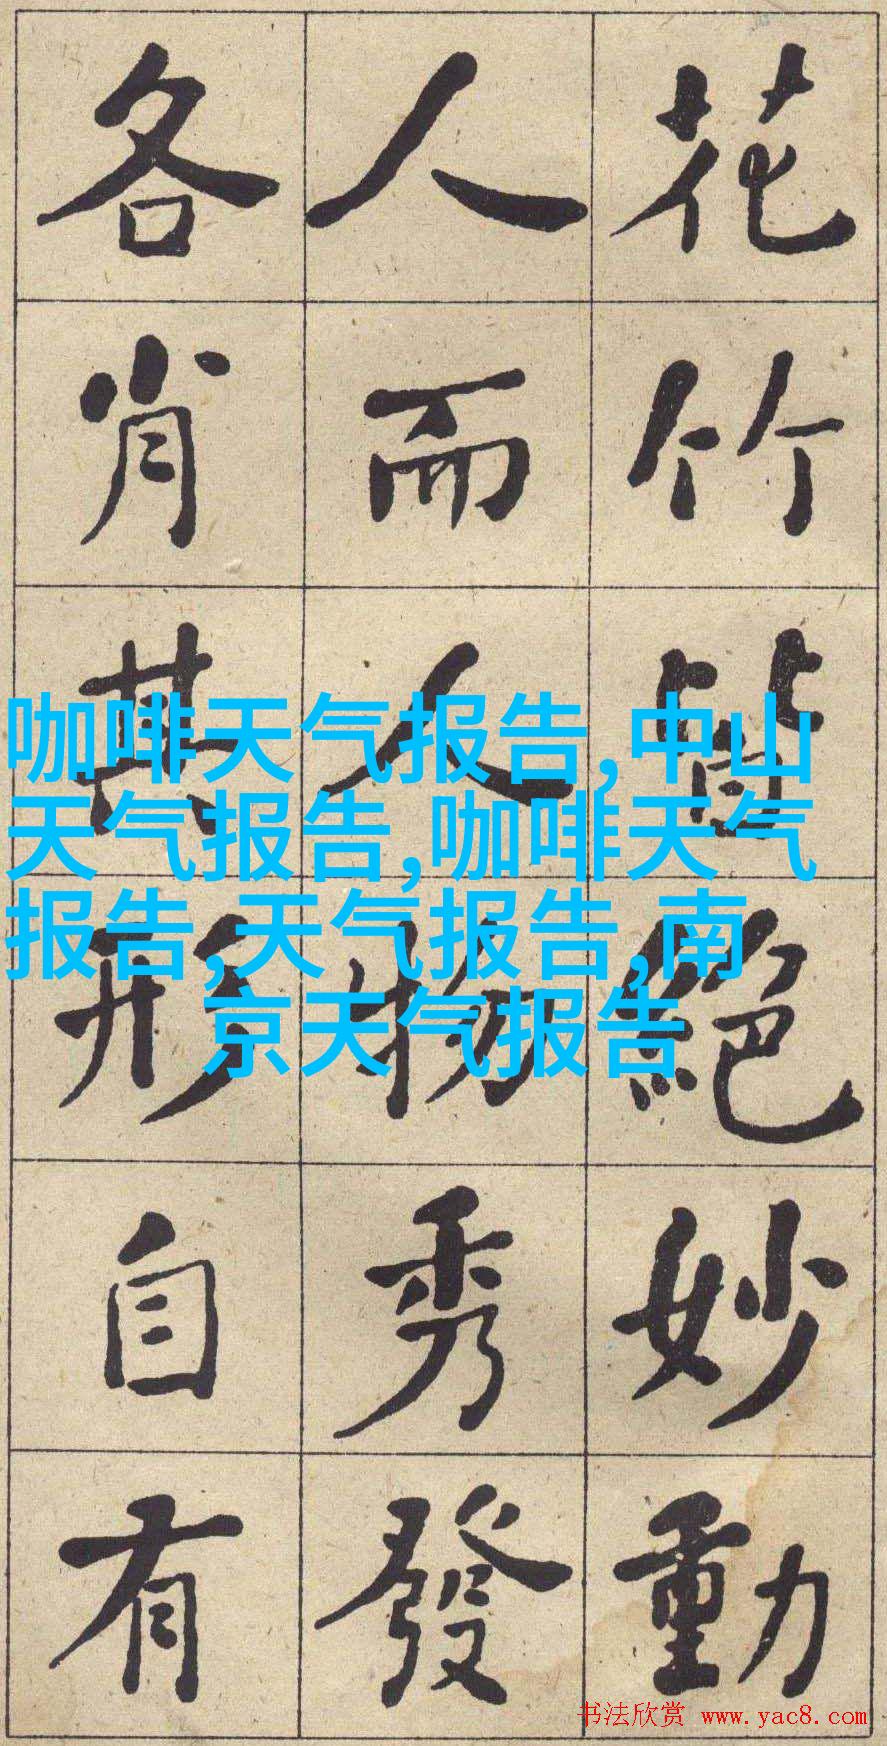 花竹皆絕妙動
人而人物秀發
各肖其形自有
咖啡天气报告,中山
天气报告,咖啡天气
报告,天气报告,南
京天气报告
书法欣赏 www.yac8.com